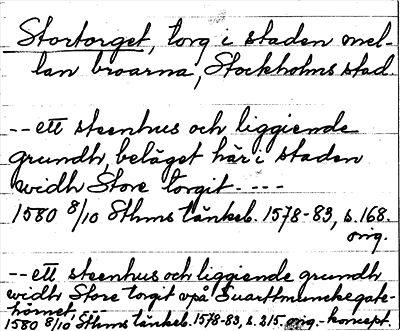 Stortorget, torg i staden mel-
lan broarna, Stockholms stad.
-- ett steenhus och liggiende
grundh, beläget här i staden
widh Store torgit. ----
1580 8/10 Sthms tänkeb. 1578-83, s. 168.
orig.
-- ett steenhus och liggiende grundh
widh Store torgit vpå Suarttmunckegate-
hörnet,
1580 8/10 Sthms tänkeb. 1578-83, s. 215 orig-koncept.